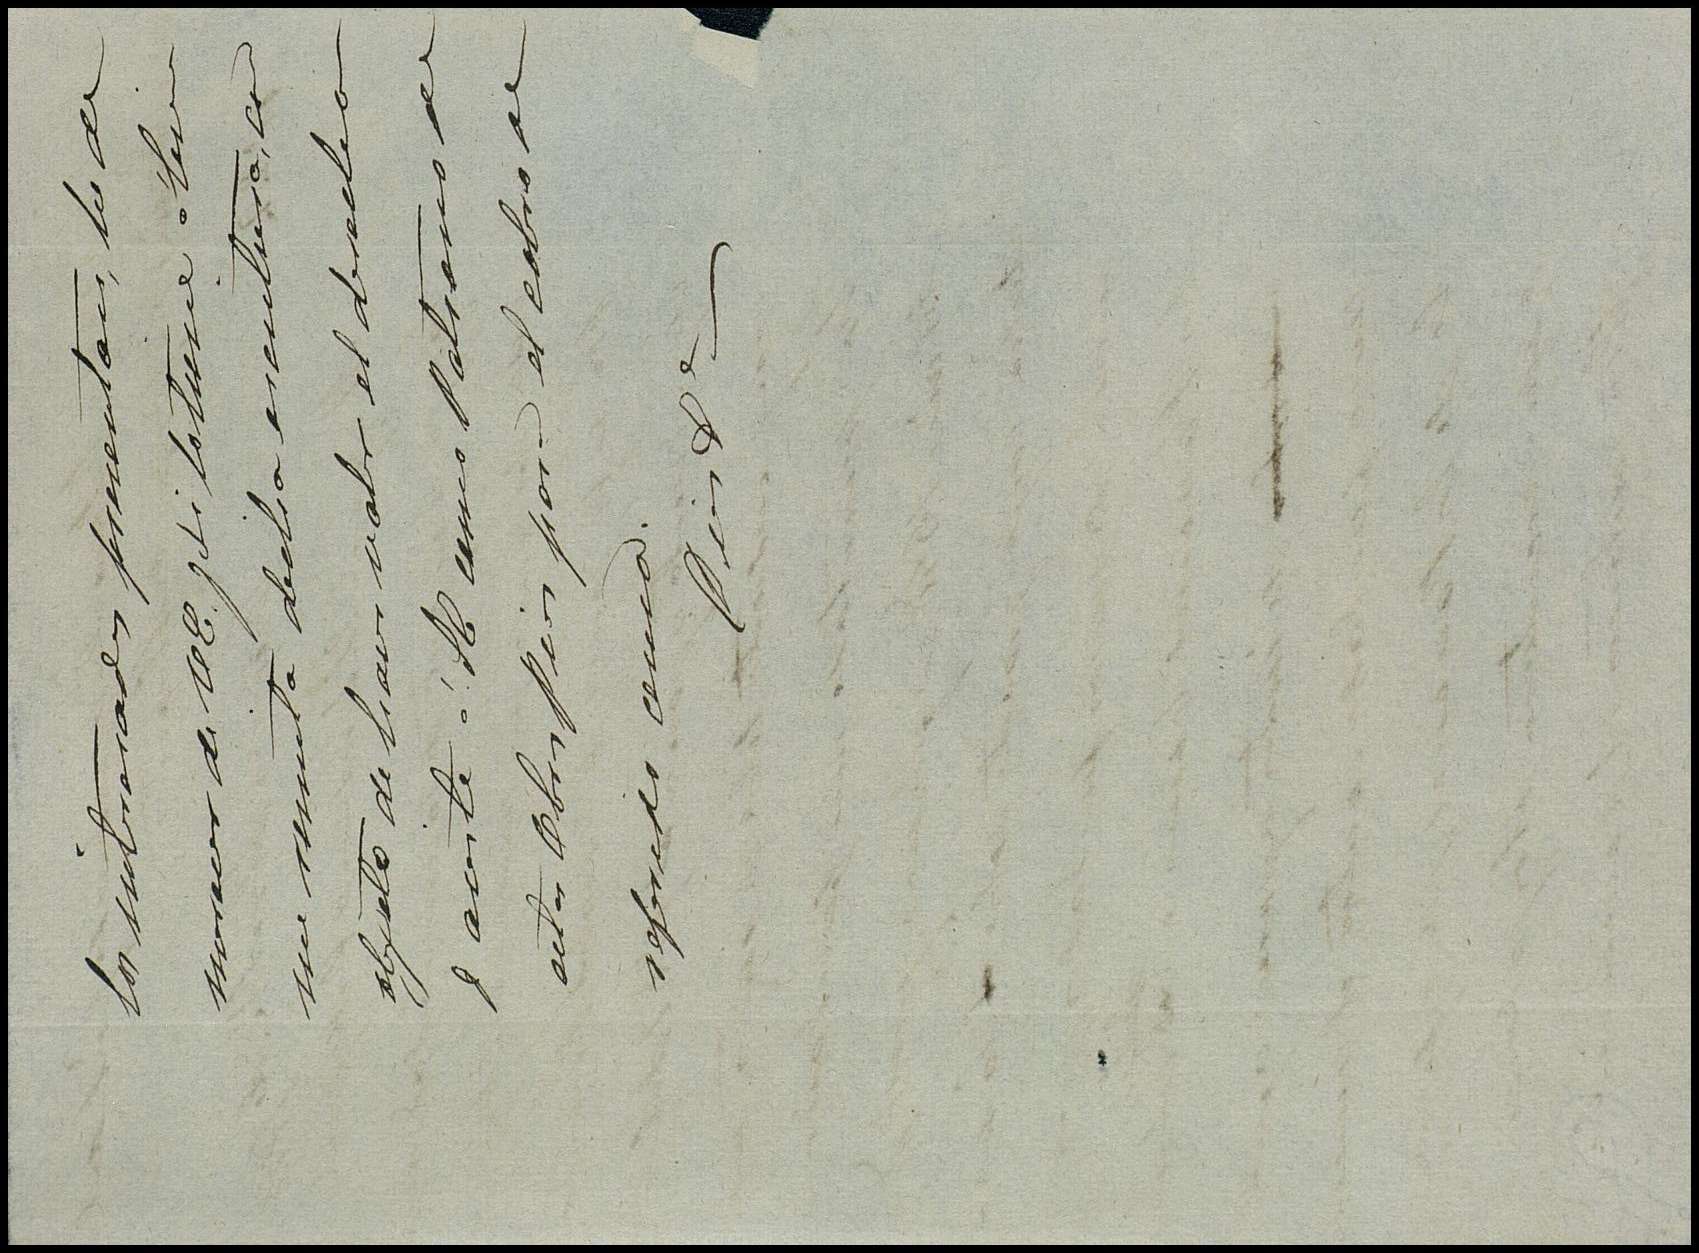 los interesados presentaron, lo de
manos de VE. y si lo tiene á bien
me remita dicha escritura, con
objeto de hacer valer el derecho
q asiste á! SE como Patrono de
estas Obras pias por el cobro de
referido censo.
Dios &ª